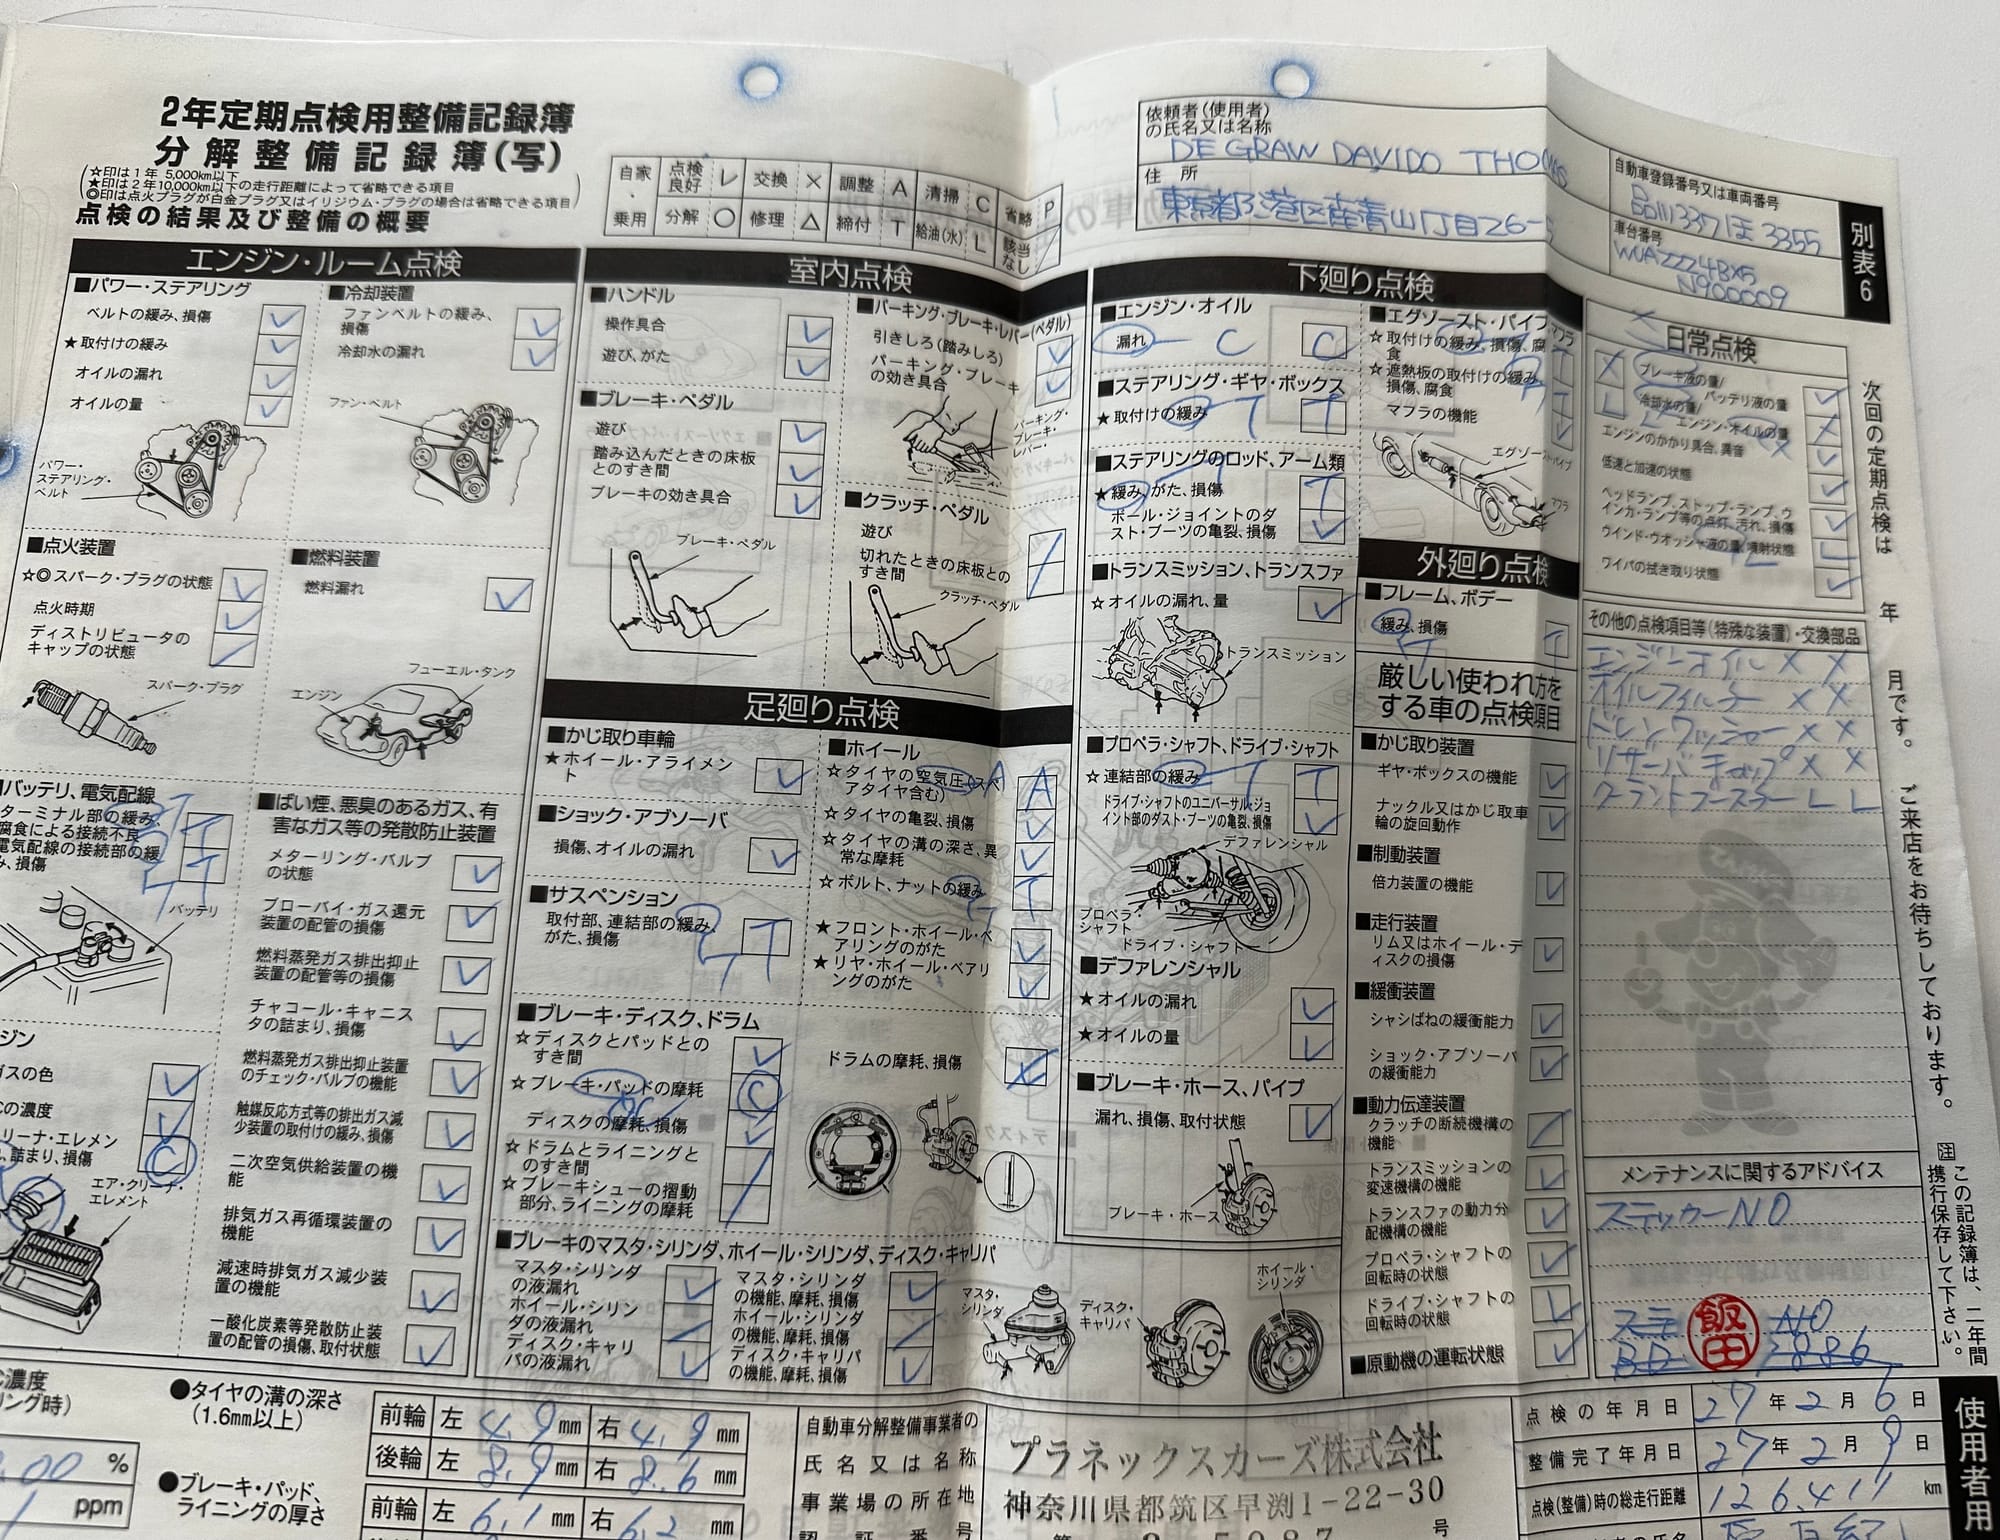 2年定期点検用整備記録簿
分解整備記録簿(写)
☆印は1年 5,000km以下
★印は2年10,000km以下の走行距離によって省略できる項目
◎印は点火プラグが白金プラグ又はイリジウム・プラグの場合は省略できる項目
点検の結果及び整備の概要
自家・乗用
点検良好 レ 交換 × 調整 A 清掃 C 省略 P
分解 ○ 修理 △ 締付 T 給油(水) L 該当なし /
依頼者(使用者)
の氏名又は名称
DE GRAW DAVIDO THOMAS
住 所
自動車登録番号又は車両番号
3355
車台番号
WUAZZZ4BX5
N900009
別表6
エンジン・ルーム点検
■パワー・ステアリング
ベルトの緩み、損傷
★取付けの緩み
オイルの漏れ
オイルの量
パワー・
ステアリング・
ベルト
■冷却装置
ファンベルトの緩み、
損傷
冷却水の漏れ
ファン・ベルト
■点火装置
☆◎スパーク・プラグの状態
点火時期
ディストリビュータの
キャップの状態
スパーク・プラグ
■燃料装置
燃料漏れ
フューエル・タンク
エンジン
■バッテリ、電気配線
ターミナル部の緩み、
腐食による接続不良
電気配線の接続部の緩
み、損傷
T
T
バッテリ
ジン
ガスの色
の濃度
リーナ・エレメン
詰まり、損傷
C
エア・クリーナ・
エレメント
■ばい煙、悪臭のあるガス、有
害なガス等の発散防止装置
メターリング・バルブ
の状態
ブローバイ・ガス還元
装置の配管の損傷
燃料蒸発ガス排出抑止
装置の配管等の損傷
チャコール・キャニス
タの詰まり、損傷
燃料蒸発ガス排出抑止装置
のチェック・バルブの機能
触媒反応方式等の排出ガス減
少装置の取付けの緩み、損傷
二次空気供給装置の機
能
排気ガス再循環装置の
機能
減速時排気ガス減少装
置の機能
一酸化炭素等発散防止装
置の配管の損傷、取付状態
室内点検
■ハンドル
操作具合
遊び、がた
■ブレーキ・ペダル
遊び
踏み込んだときの床板
とのすき間
ブレーキの効き具合
ブレーキ・ペダル
■パーキング・ブレーキ・レバー(ペダル)
引きしろ(踏みしろ)
パーキング・ブレーキ
の効き具合
パーキング・
ブレーキ・
レバー
■クラッチ・ペダル
遊び
切れたときの床板との
すき間
クラッチ・ペダル
足廻り点検
■かじ取り車輪
★ホイール・アライメン
ト
■ショック・アブソーバ
損傷、オイルの漏れ
■サスペンション
取付部、連結部の緩み、
がた、損傷
T
■ホイール
☆タイヤの空気圧(スペ
アタイヤ含む)
A
☆タイヤの亀裂、損傷
☆タイヤの溝の深さ、異
常な摩耗
☆ボルト、ナットの緩み
T
★フロント・ホイール・ベ
アリングのがた
★リヤ・ホイール・ベアリ
ングのがた
■ブレーキ・ディスク、ドラム
☆ディスクとパッドとの
すき間
☆ブレーキ・パッドの摩耗
C
ディスクの摩耗、損傷
☆ドラムとライニングと
のすき間
☆ブレーキシューの摺動
部分、ライニングの摩耗
ドラムの摩耗、損傷
■ブレーキのマスタ・シリンダ、ホイール・シリンダ、ディスク・キャリパ
マスタ・シリンダ
の液漏れ
ホイール・シリン
ダの液漏れ
ディスク・キャリ
パの液漏れ
マスタ・シリンダ
の機能、摩耗、損傷
ホイール・シリンダ
の機能、摩耗、損傷
ディスク・キャリパ
の機能、摩耗、損傷
マスタ・
シリンダ
ディスク・
キャリパ
ホイール・
シリンダ
下廻り点検
■エンジン・オイル
漏れ C C
■ステアリング・ギヤ・ボックス
★取付けの緩み T T
■ステアリングのロッド、アーム類
★緩み、がた、損傷 T
ボール・ジョイントのダ
スト・ブーツの亀裂、損傷
■トランスミッション、トランスファ
☆オイルの漏れ、量
トランスミッション
■プロペラ・シャフト、ドライブ・シャフト
☆連結部の緩み T T
ドライブ・シャフトのユニバーサル・ジョ
イント部のダスト・ブーツの亀裂、損傷
デファレンシャル
プロペラ・
シャフト
ドライブ・シャフト
■デファレンシャル
★オイルの漏れ
★オイルの量
■ブレーキ・ホース、パイプ
漏れ、損傷、取付状態
ブレーキ・ホース
■エグゾースト・パイプ、マフラ
☆取付けの緩み、損傷、腐
食
☆遮熱板の取付けの緩み、
損傷、腐食
マフラの機能
マフラ
外廻り点検
■フレーム、ボデー
緩み、損傷
T
厳しい使われ方を
する車の点検項目
■かじ取り装置
ギヤ・ボックスの機能
ナックル又はかじ取車
輪の旋回動作
■制動装置
倍力装置の機能
■走行装置
リム又はホイール・デ
ィスクの損傷
■緩衝装置
シャシばねの緩衝能力
ショック・アブソーバ
の緩衝能力
■動力伝達装置
クラッチの断続機構の
機能
トランスミッションの
変速機構の機能
トランスファの動力分
配機構の機能
プロペラ・シャフトの
回転時の状態
ドライブ・シャフトの
回転時の状態
■原動機の運転状態
日常点検
ブレーキ液の量/
バッテリ液の量
冷却水の量/
エンジン・オイルの量
エンジンのかかり具合、異音
低速と加速の状態
ヘッドランプ、ストップ・ランプ、ウ
インカ・ランプ等の点灯、汚れ、損傷
ウインド・ウオッシャ液の量、噴射状態
ワイパの拭き取り状態
その他の点検項目等(特殊な装置)・交換部品
エンジンオイル × ×
オイルフィルター × ×
ドレンワッシャー × ×
リザーバキャップ × ×
クーラントブースター L L
メンテナンスに関するアドバイス
ステッカーNO
飯田
次回の定期点検は 年 月です。 ご来店をお待ちしております。
注 この記録簿は、二年間
携行保存して下さい。
使用者用
濃度
リング時)
%
ppm
●タイヤの溝の深さ
(1.6mm以上)
前輪 左 4.9 mm 右 4.9 mm
後輪 左 8.9 mm 右 8.6 mm
●ブレーキ・パッド、
ライニングの厚さ
前輪 左 6.1 mm 右 6.2 mm
自動車分解整備事業者の
氏名又は名称
事業場の所在地
認証番号
プラネックスカーズ株式会社
神奈川県都筑区早渕1-22-30
号
点検の年月日 27年2月6日
整備完了年月日 27年2月9日
点検(整備)時の総走行距離 126,411 km